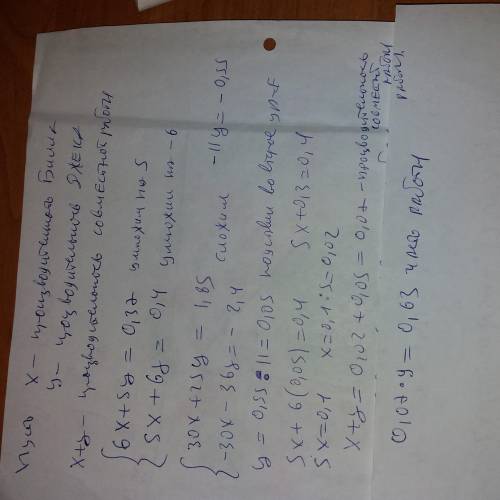 Пусть x – производительность Билли
y – производительность Джека
x+y – производительность совместной работы
{ 6x+5y = 0,37 умножим на 5
5x+6y = 0,4 умножим на -6
{ 30x+25y = 1,85
-30x-36y = -2,4 сложим -11y = -0,55
y = 0,55:11 = 0,05 подставим во второе ур-е
5x+6(0,05)=0,4 5x+0,3=0,4
5x=0,1 x=0,1:5=0,02
x+y = 0,02+0,05=0,07 - производительность совместной работы
0,07·9 = 0,63 часть работы